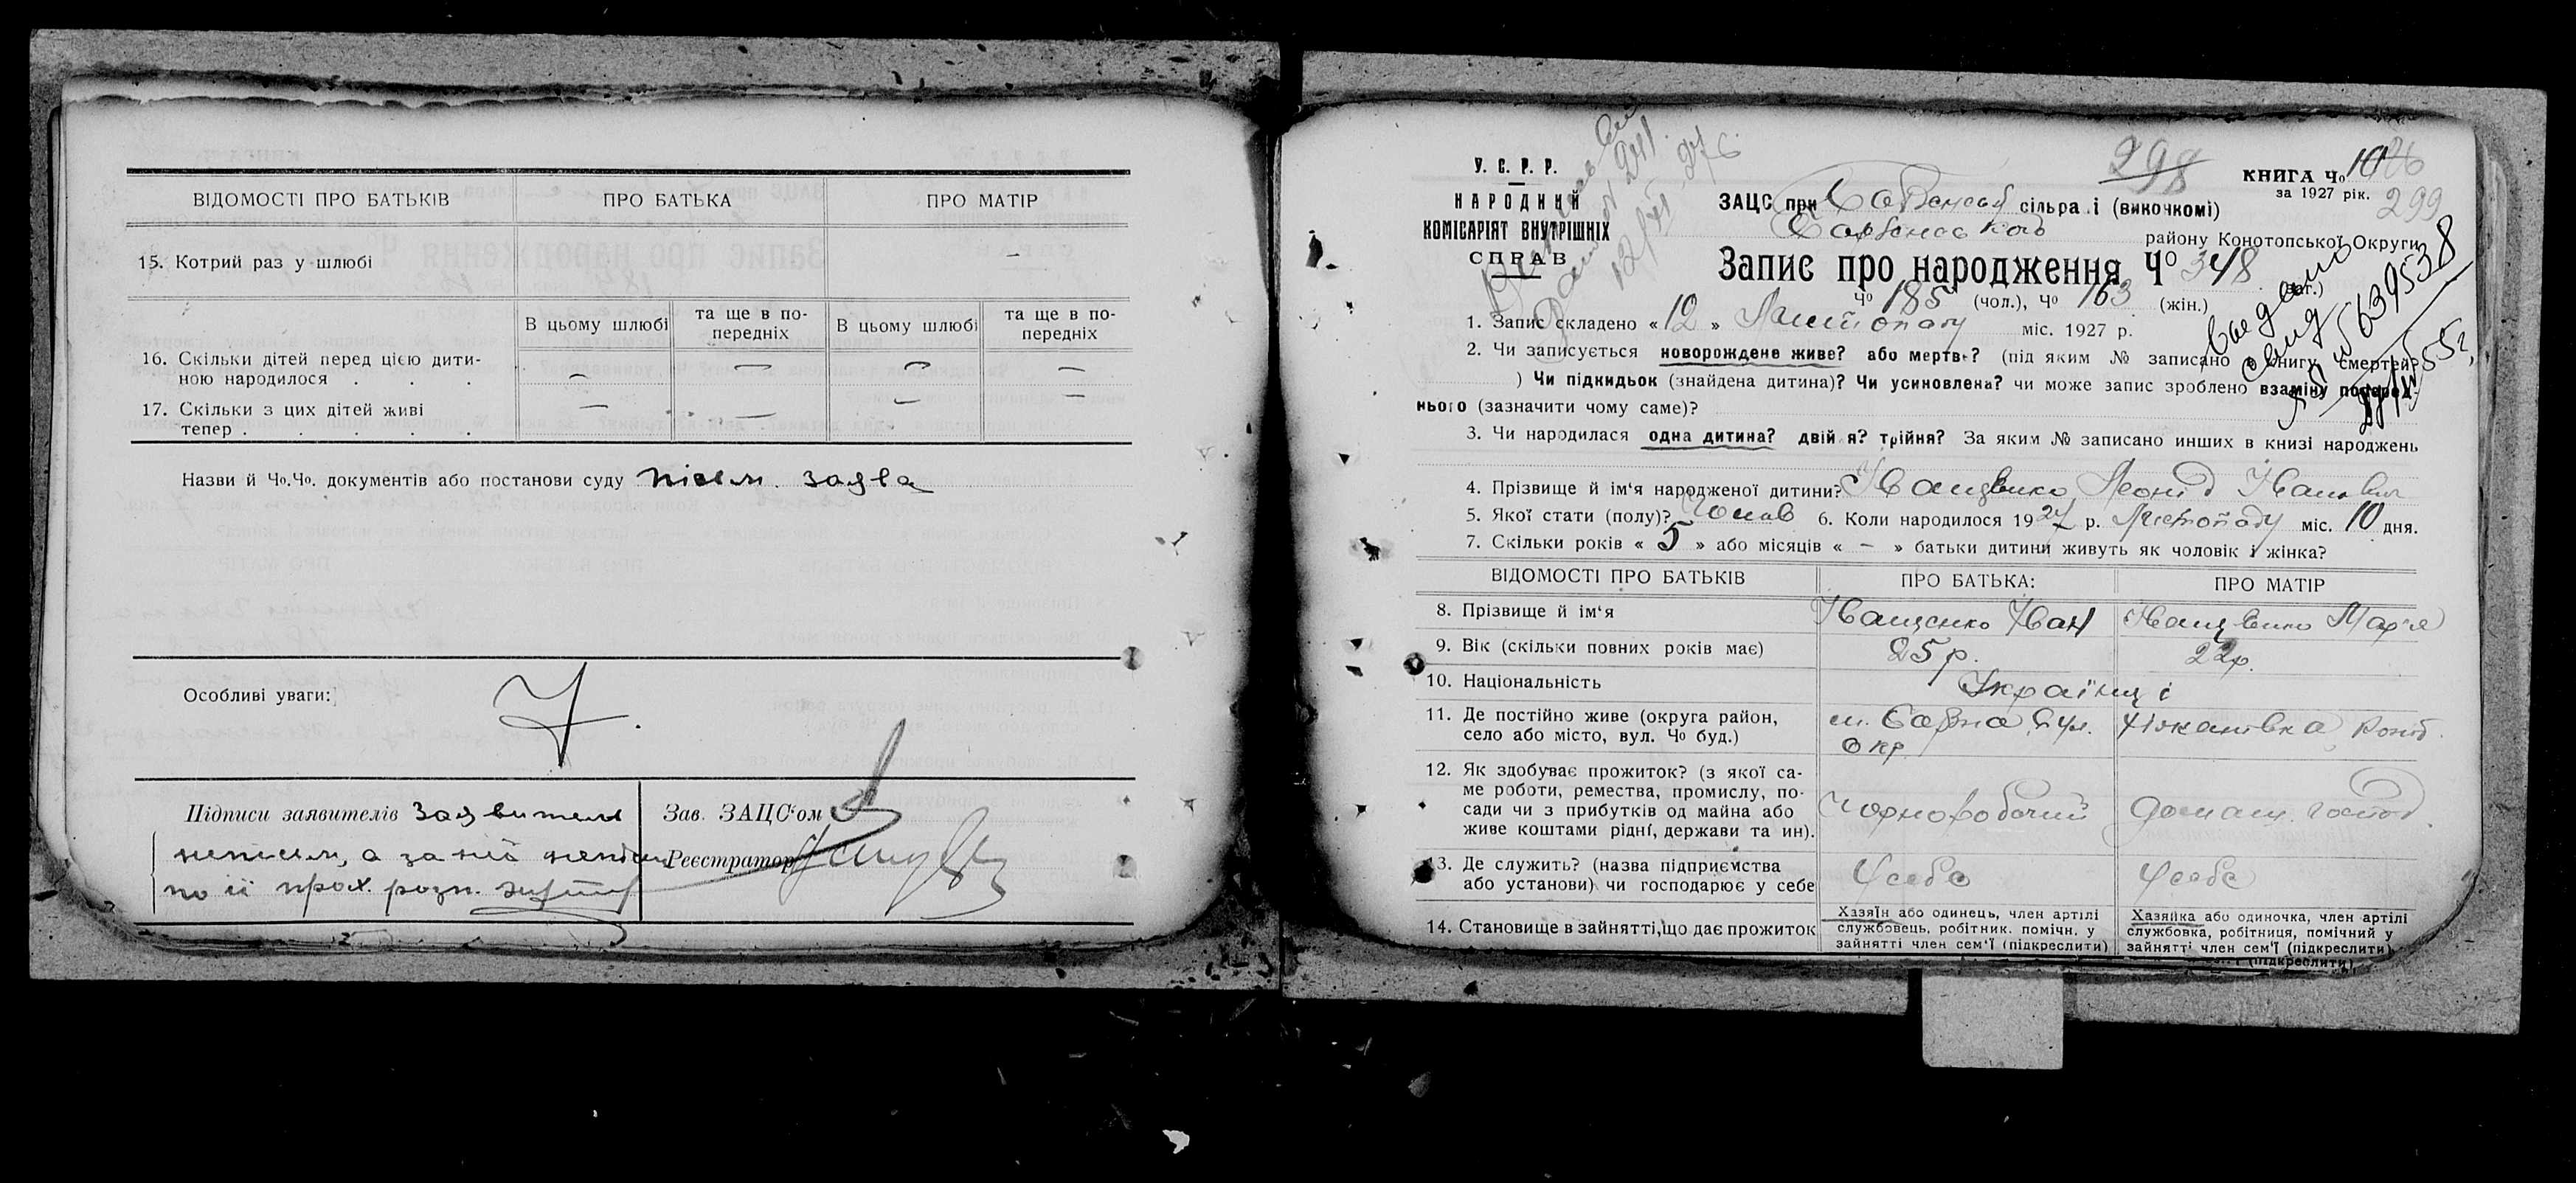 ВІДОМОСТІ ПРО БАТЬКІВ ПРО БАТЬКА ПРО МАТІР
15. Котрий раз у шлюбі -
В цьому шлюбі та ще в по-передніх В цьому шлюбі та ще в по-передніх
16. Скільки дітей перед цією дити-
ною народилося . . . — — — —
17. Скільки з цих дітей живі
тепер . . . . . — — — —
Назви й Чо.Чо. документів або постанови суду письм. заява
Особливі уваги:
Підписи заявителів Заявитель
неписьм, а за неї
по її прох. розп.
Зав. ЗАЦС'ом
Реєстратор
У. С. Р. Р.
НАРОДНИЙ
КОМІСАРІЯТ ВНУТРІШНІХ
СПРАВ
298
КНИГА Чо 10
за 1927 рік.
26
299
ЗАЦС при сільраді (викочкомі)
району Конотопської Округи
Запис про народження Чо 348 (заг.)
Чо 185 (чол.), Чо 163 (жін.)
1. Запис складено « 12 » Листопаду міс. 1927 р.
2. Чи записується новорождене живе? або мертве? (під яким № записано в книгу смертей?
) Чи підкидьок (знайдена дитина)? Чи усиновлена? чи може запис зроблено взаміну поперед-
нього (зазначити чому саме)?
3. Чи народилася одна дитина? двійня? трійня? За яким № записано инших в книзі народжень
4. Прізвище й ім'я народженої дитини? Іващенко Леонід Іванович
5. Якої стати (полу)? 6. Коли народилося 1927 р. Листопаду міс. 10 дня.
7. Скільки років « 5 » або місяців « – » батьки дитини живуть як чоловік і жінка?
ВІДОМОСТІ ПРО БАТЬКІВ ПРО БАТЬКА: ПРО МАТІР
8. Прізвище й ім'я Іващенко Іван Іващенко Мар'я
9. Вік (скільки повних років має) 25 р. 22 р.
10. Національність Українці
11. Де постійно живе (округа район,
село або місто, вул. Чо буд.)
окр
12. Як здобуває прожиток? (з якої са-
ме роботи, ремества, промислу, по-
сади чи з прибутків од майна або
живе коштами рідні, держави та ин).
Чорноробочий домаш. господ.
13. Де служить? (назва підприємства
або установи) чи господарює у себе
У себе У себе
14. Становище в зайнятті, що дає прожиток
Хазяїн або одинець, член артілі
службовець, робітник. помічн. у
зайнятті член сем'ї (підкреслити)
Хазяйка або одиночка, член артілі
службовка, робітниця, помічний у
зайнятті член сем'ї (підкреслити)
(підкреслити)